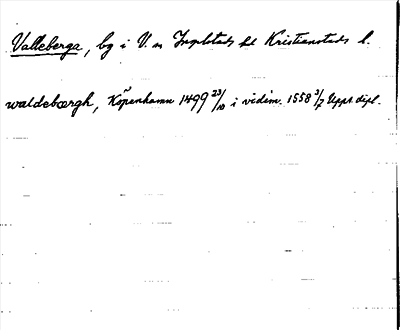 Valleberga, by i V. sn Ingelstads hd Kristianstads l.
waldebœrgh, Köpenhamn 1499 23/10 i vidim. 1558 3/7 Upps. dipl.